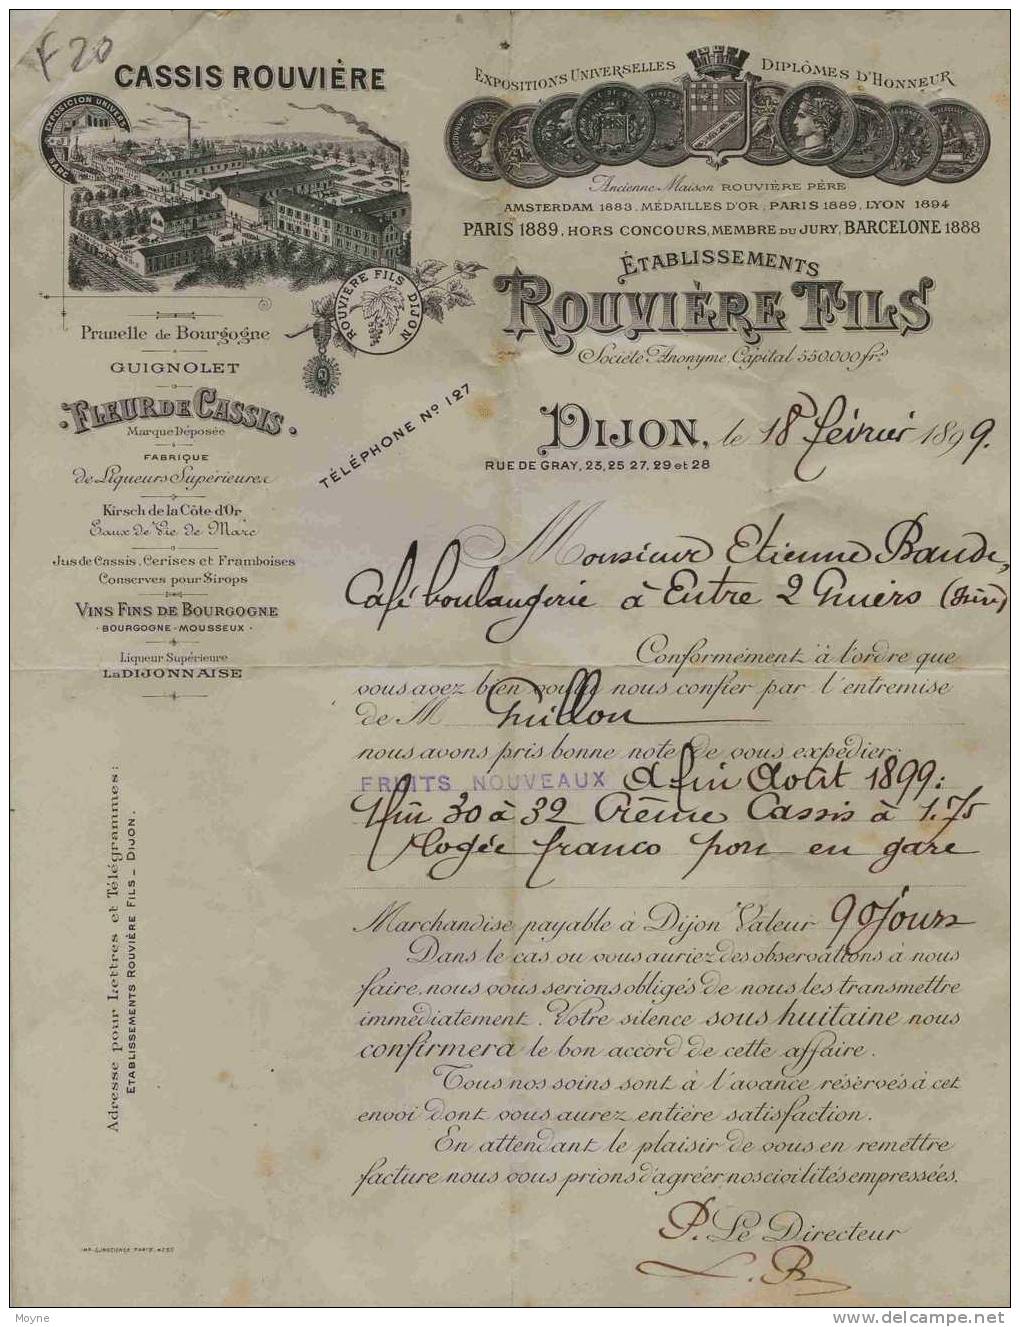 F 20
CASSIS ROUVIÈRE
EXPOSICION UNIVERS
EXPOSITIONS UNIVERSELLES DIPLÔMES D'HONNEUR
Ancienne Maison ROUVIÈRE PÈRE
AMSTERDAM 1883. MÉDAILLES D'OR, PARIS 1889, LYON 1894
PARIS 1889, HORS CONCOURS, MEMBRE DU JURY, BARCELONE 1888
ÉTABLISSEMENTS
ROUVIÈRE FILS
Société Anonyme, Capital 550.000 frs
ROUVIÈRE FILS DIJON
Prunelle de Bourgogne
GUIGNOLET
FLEUR DE CASSIS.
Marque Déposée
FABRIQUE
de Liqueurs Supérieures
Kirsch de la Côte-d'Or
Eaux de Vie de Marc
Jus de Cassis, Cerises et Framboises
Conserves pour Sirops
VINS FINS DE BOURGOGNE
BOURGOGNE-MOUSSEUX
Liqueur Supérieure
LA DIJONNAISE
TÉLÉPHONE No 127
DIJON, le 18 février 1899.
RUE DE GRAY, 23, 25 27, 29 et 28
Monsieur Etienne
Café boulangerie à Entre 2 Guiers (Isère)
Conformément à l'ordre que
vous avez bien voulu nous confier par l'entremise
de M Guillon
nous avons pris bonne note de vous expédier:
FRUITS NOUVEAUX à fin Août 1899:
1 fût 30 à 32 Crème Cassis à 1.75
logée franco port en gare
Marchandise payable à Dijon Valeur 90 jours
Dans le cas ou vous auriez des observations à nous
faire, nous vous serions obligés de nous les transmettre
immédiatement. Votre silence sous huitaine nous
confirmera le bon accord de cette affaire.
Tous nos soins sont à l'avance réservés à cet
envoi dont vous aurez entière satisfaction.
En attendant le plaisir de vous en remettre
facture nous vous prions d'agréer nos civilités empressées.
P. Le Directeur
L. B
Adresse pour Lettres et Télégrammes:
ETABLISSEMENTS ROUVIÈRE FILS _ DIJON.
Moyne
www.delcampe.net